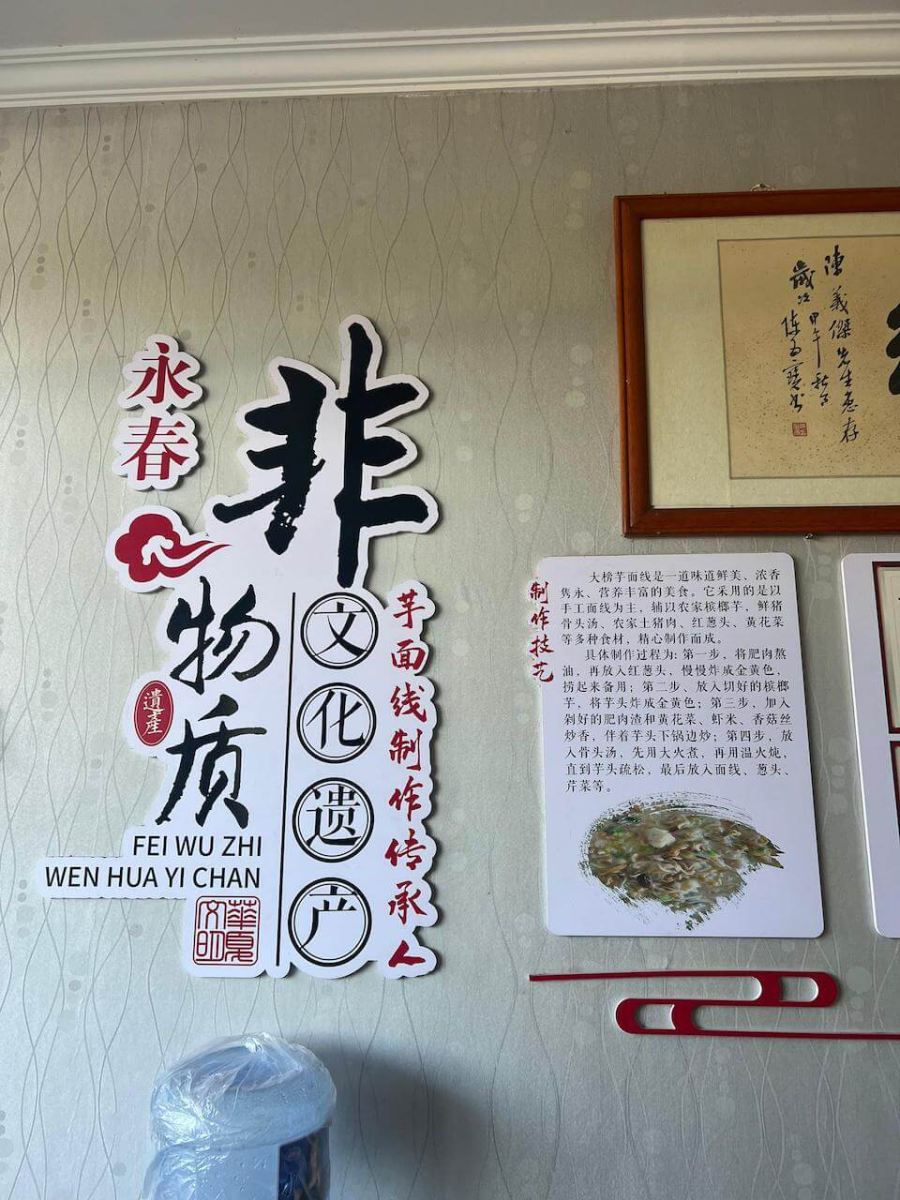 永春
非
物质
遗產
FEI WU ZHI
WEN HUA YI CHAN
華夏
文明
文化遗产
芋面线制作传承人
陳義傑先生惠存
歲次甲午秋月
制作技艺
大榜芋面线是一道味道鲜美、浓香
隽永、营养丰富的美食。它采用的是以
手工面线为主，辅以农家槟榔芋，鲜猪
骨头汤、农家土猪肉、红葱头、黄花菜
等多种食材，精心制作而成。
具体制作过程为：第一步，将肥肉熬
油，再放入红葱头，慢慢炸咸金黄色，
捞起来备用；第二步、放入切好的槟榔
芋，将芋头炸咸金黄色；第三步，加入
剁好的肥肉渣和黄花菜、虾米、香菇丝
炒香，伴着芋头下锅边炒；第四步，放
入骨头汤，先用大火煮，再用温火炖，
直到芋头疏松，最后放入面线、葱头、
芹菜等。